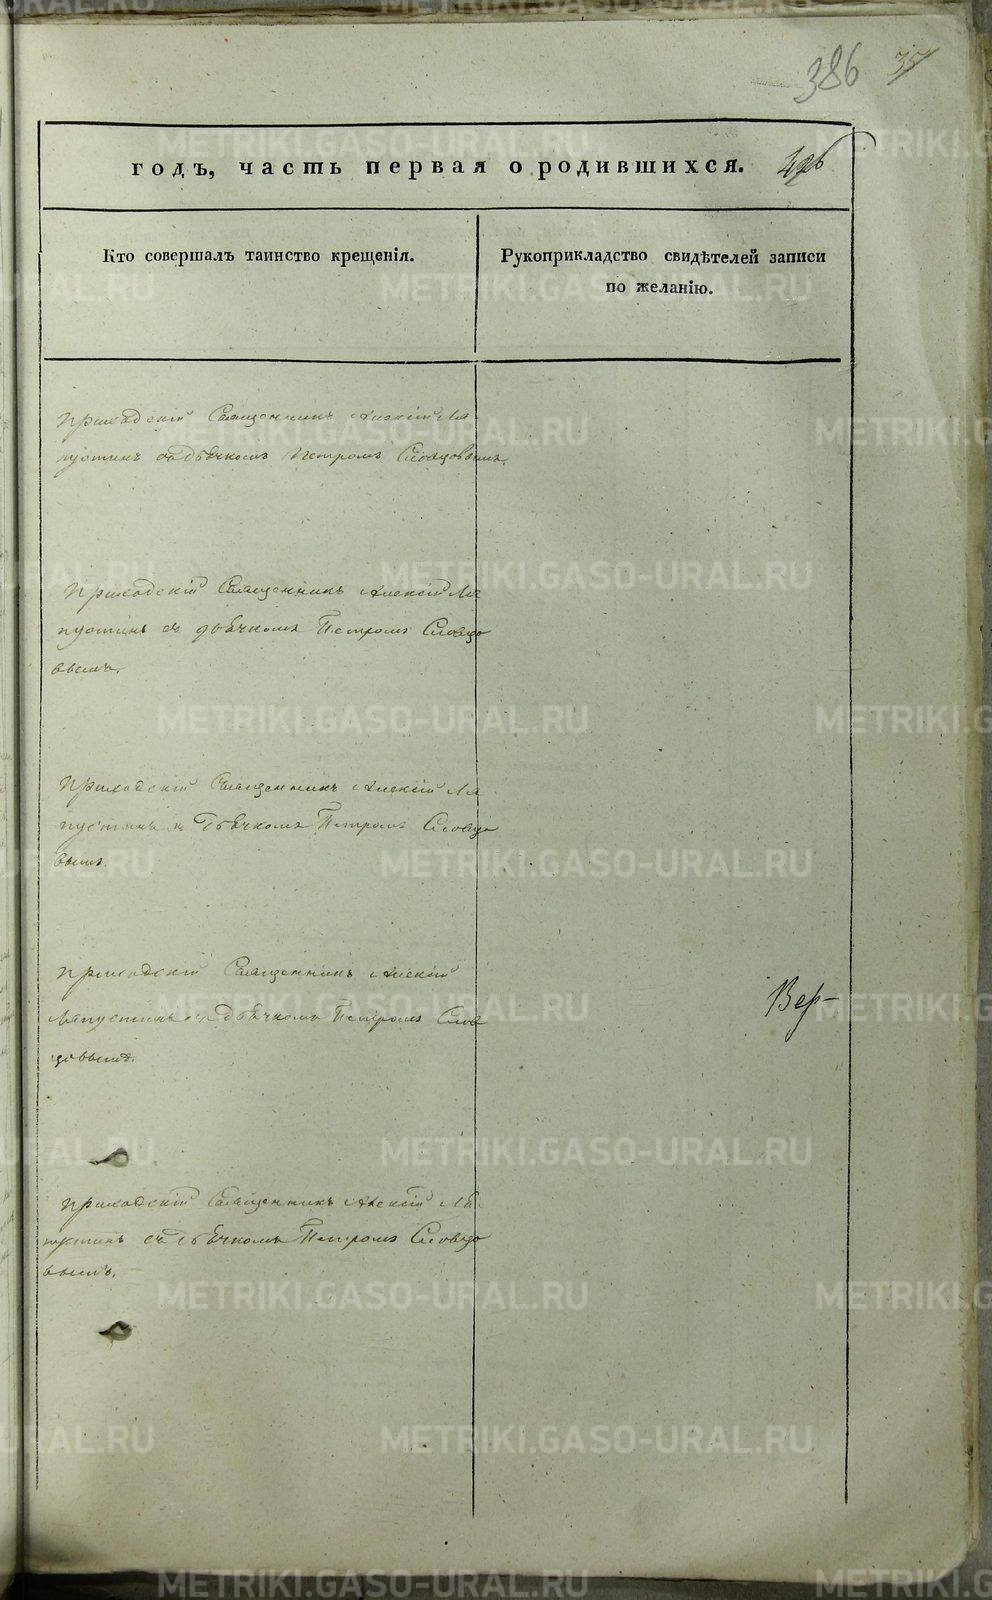 386 35
годъ, часть первая о родившихся.
Кто совершалъ таинство крещенія.
Рукоприкладство свидѣтелей записи
по желанію.
Приходскій Священникъ Алексій Ля
пустинъ съ дьячкомъ Петромъ Словцовымъ.
Приходскій Священникъ Алексій Ля
пустинъ съ дьячкомъ Петромъ Словцо
вымъ.
Приходскій Священникъ Алексій Ля
пустинъ съ дьячкомъ Петромъ Словцо
вымъ.
Приходскій Священникъ Алексій
Ляпустинъ съ дьячкомъ Петромъ Слов
цовымъ.
Вер-
Приходскій Священникъ Алексій Ля
пустинъ съ дьячкомъ Петромъ Словцо
вымъ.
METRIKI.GASO-URAL.RU